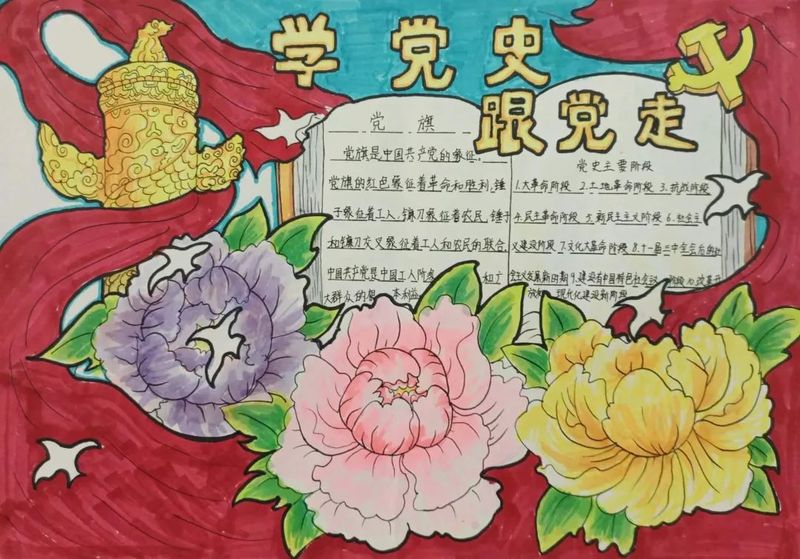 学党史
跟党走
党旗
党旗是中国共产党的象征。
党旗的红色象征着革命和胜利,锤
子象征着工人,镰刀象征着农民,锤子
和镰刀交叉象征着工人和农民的联合,
中国共产党是中国工人阶 和广
大群众的 本利益
党史主要阶段
1.大革命阶段 2.土地革命阶段 3.抗战阶段
4.民主革命阶段 5.新民主主义阶段 6.社会主
义建设阶段 7.文化大革命阶段 8.十一届三中全会后的
主义发展新时期 9.建设有中国特色社会 阶段 10.改革开
放和 现代化建设新阶段